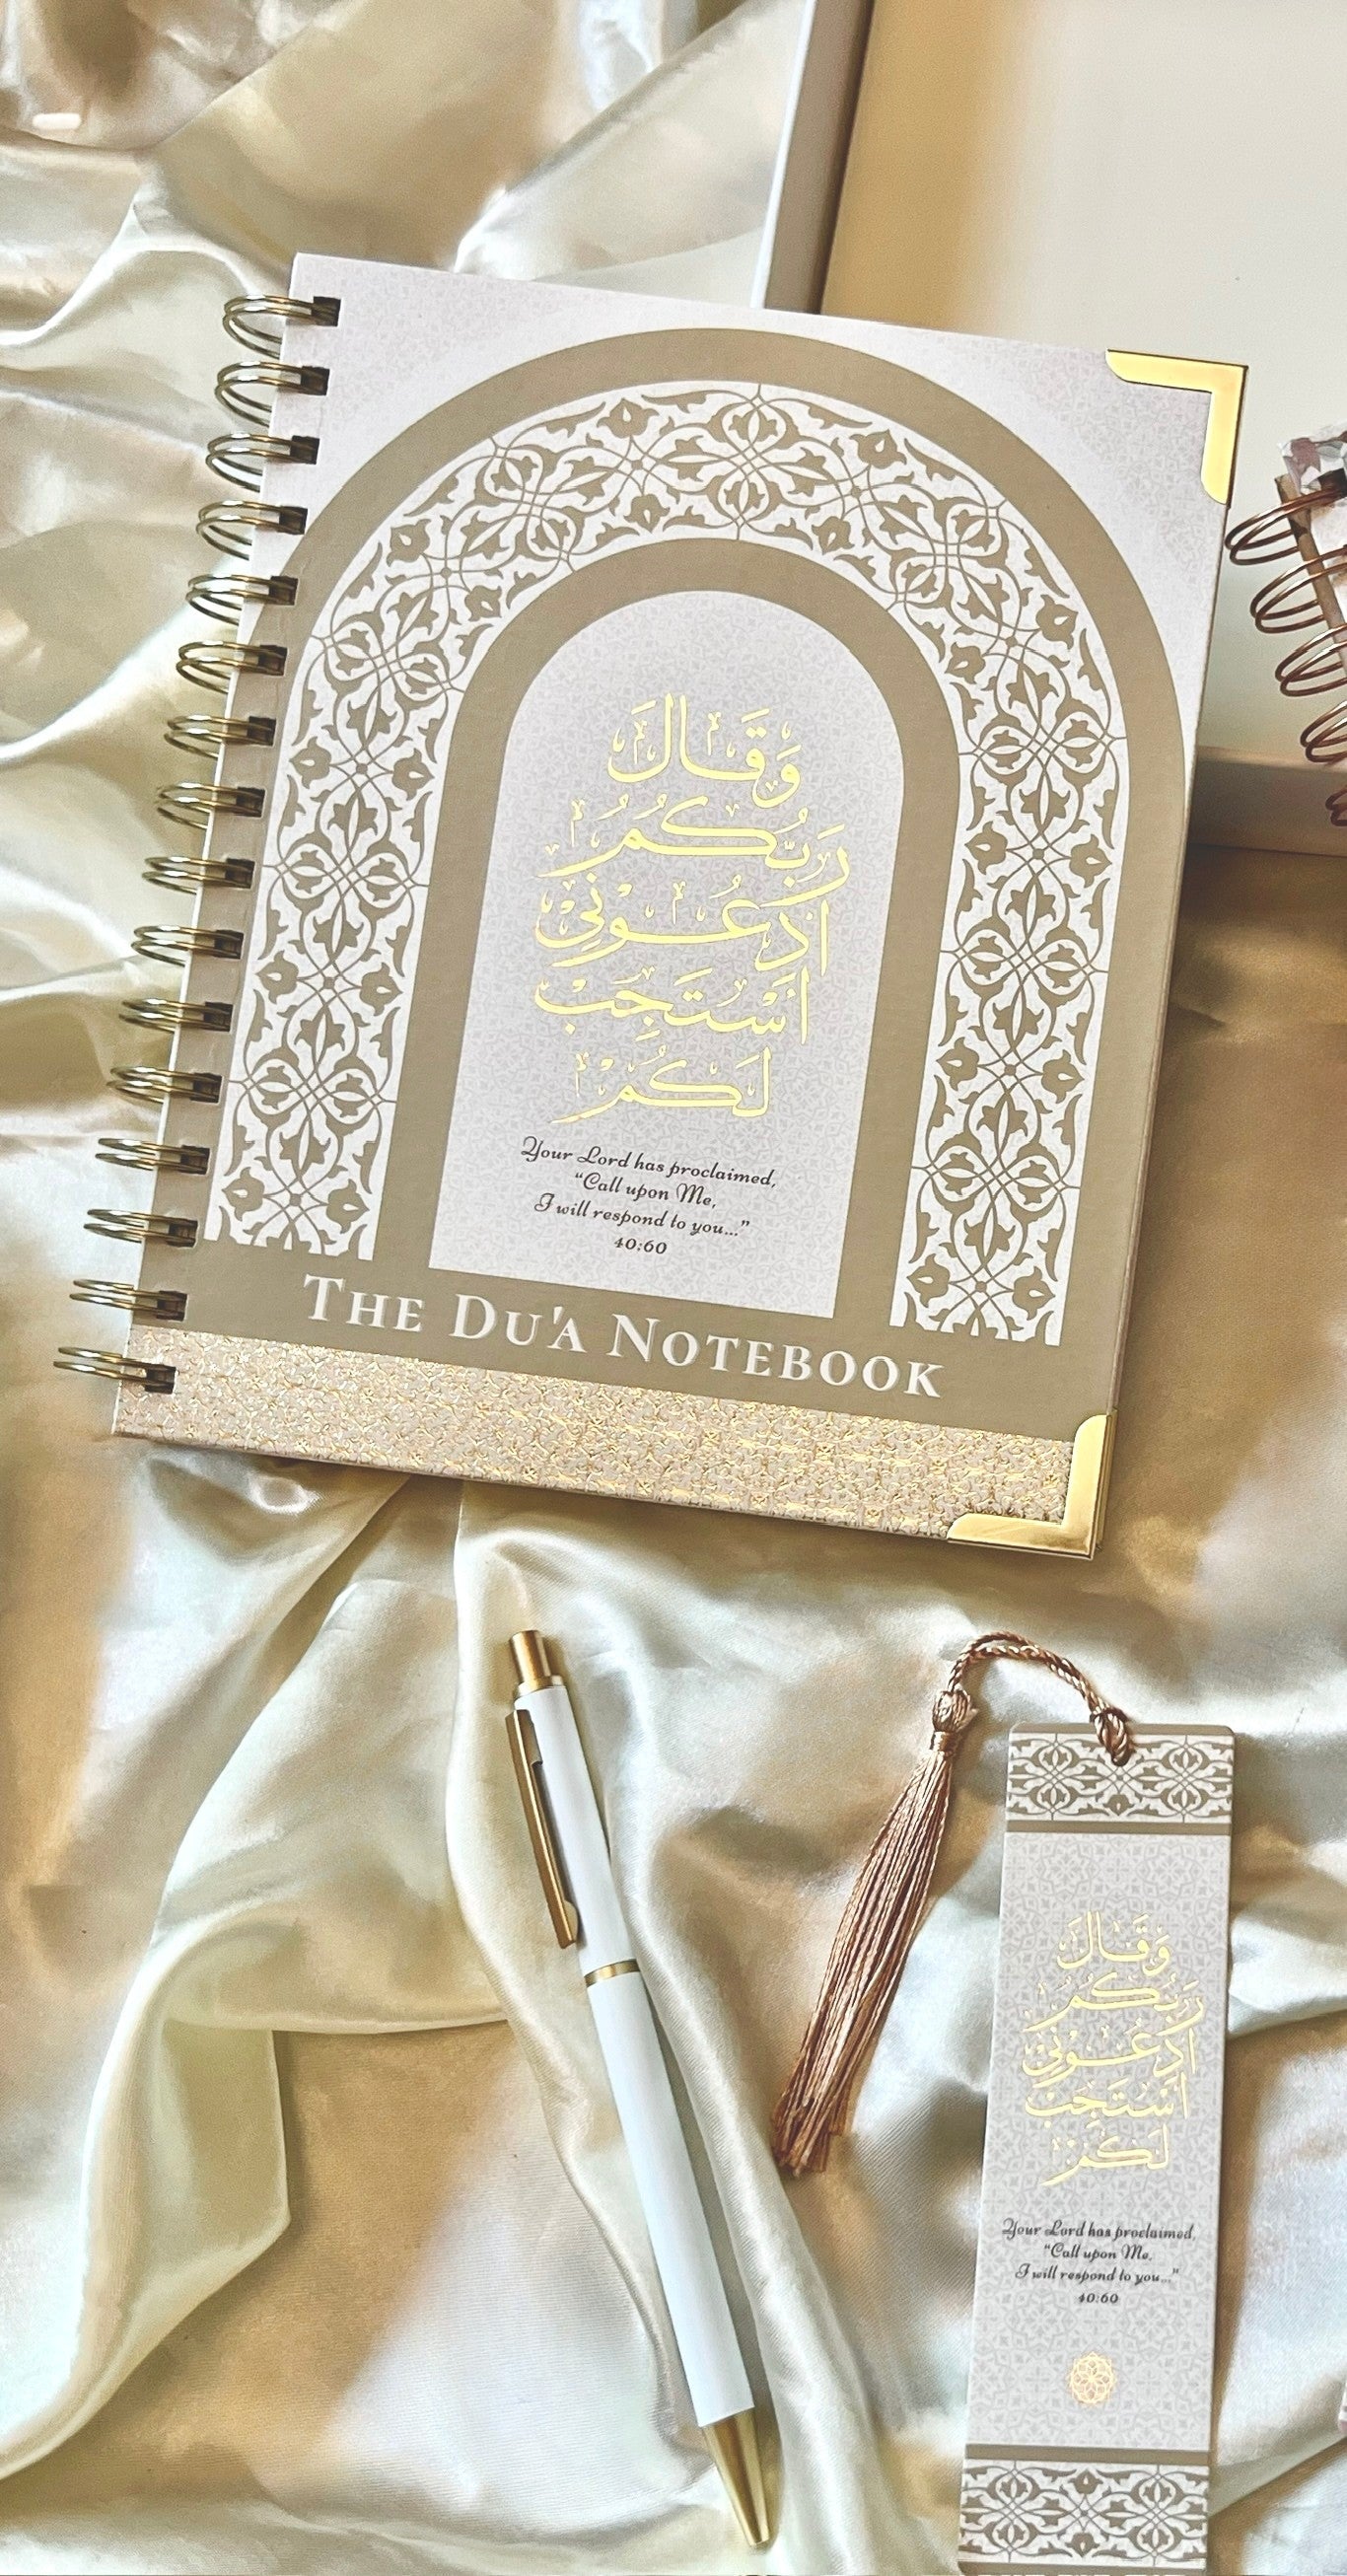 وَقَالَ
رَبُّكُمُ
ادْعُونِي
أَسْتَجِبْ
لَكُمْ
Your Lord has proclaimed,
“Call upon Me,
I will respond to you...”
40:60
THE DU'A NOTEBOOK
وَقَالَ
رَبُّكُمُ
ادْعُونِي
أَسْتَجِبْ
لَكُمْ
Your Lord has proclaimed,
“Call upon Me,
I will respond to you...”
40:60